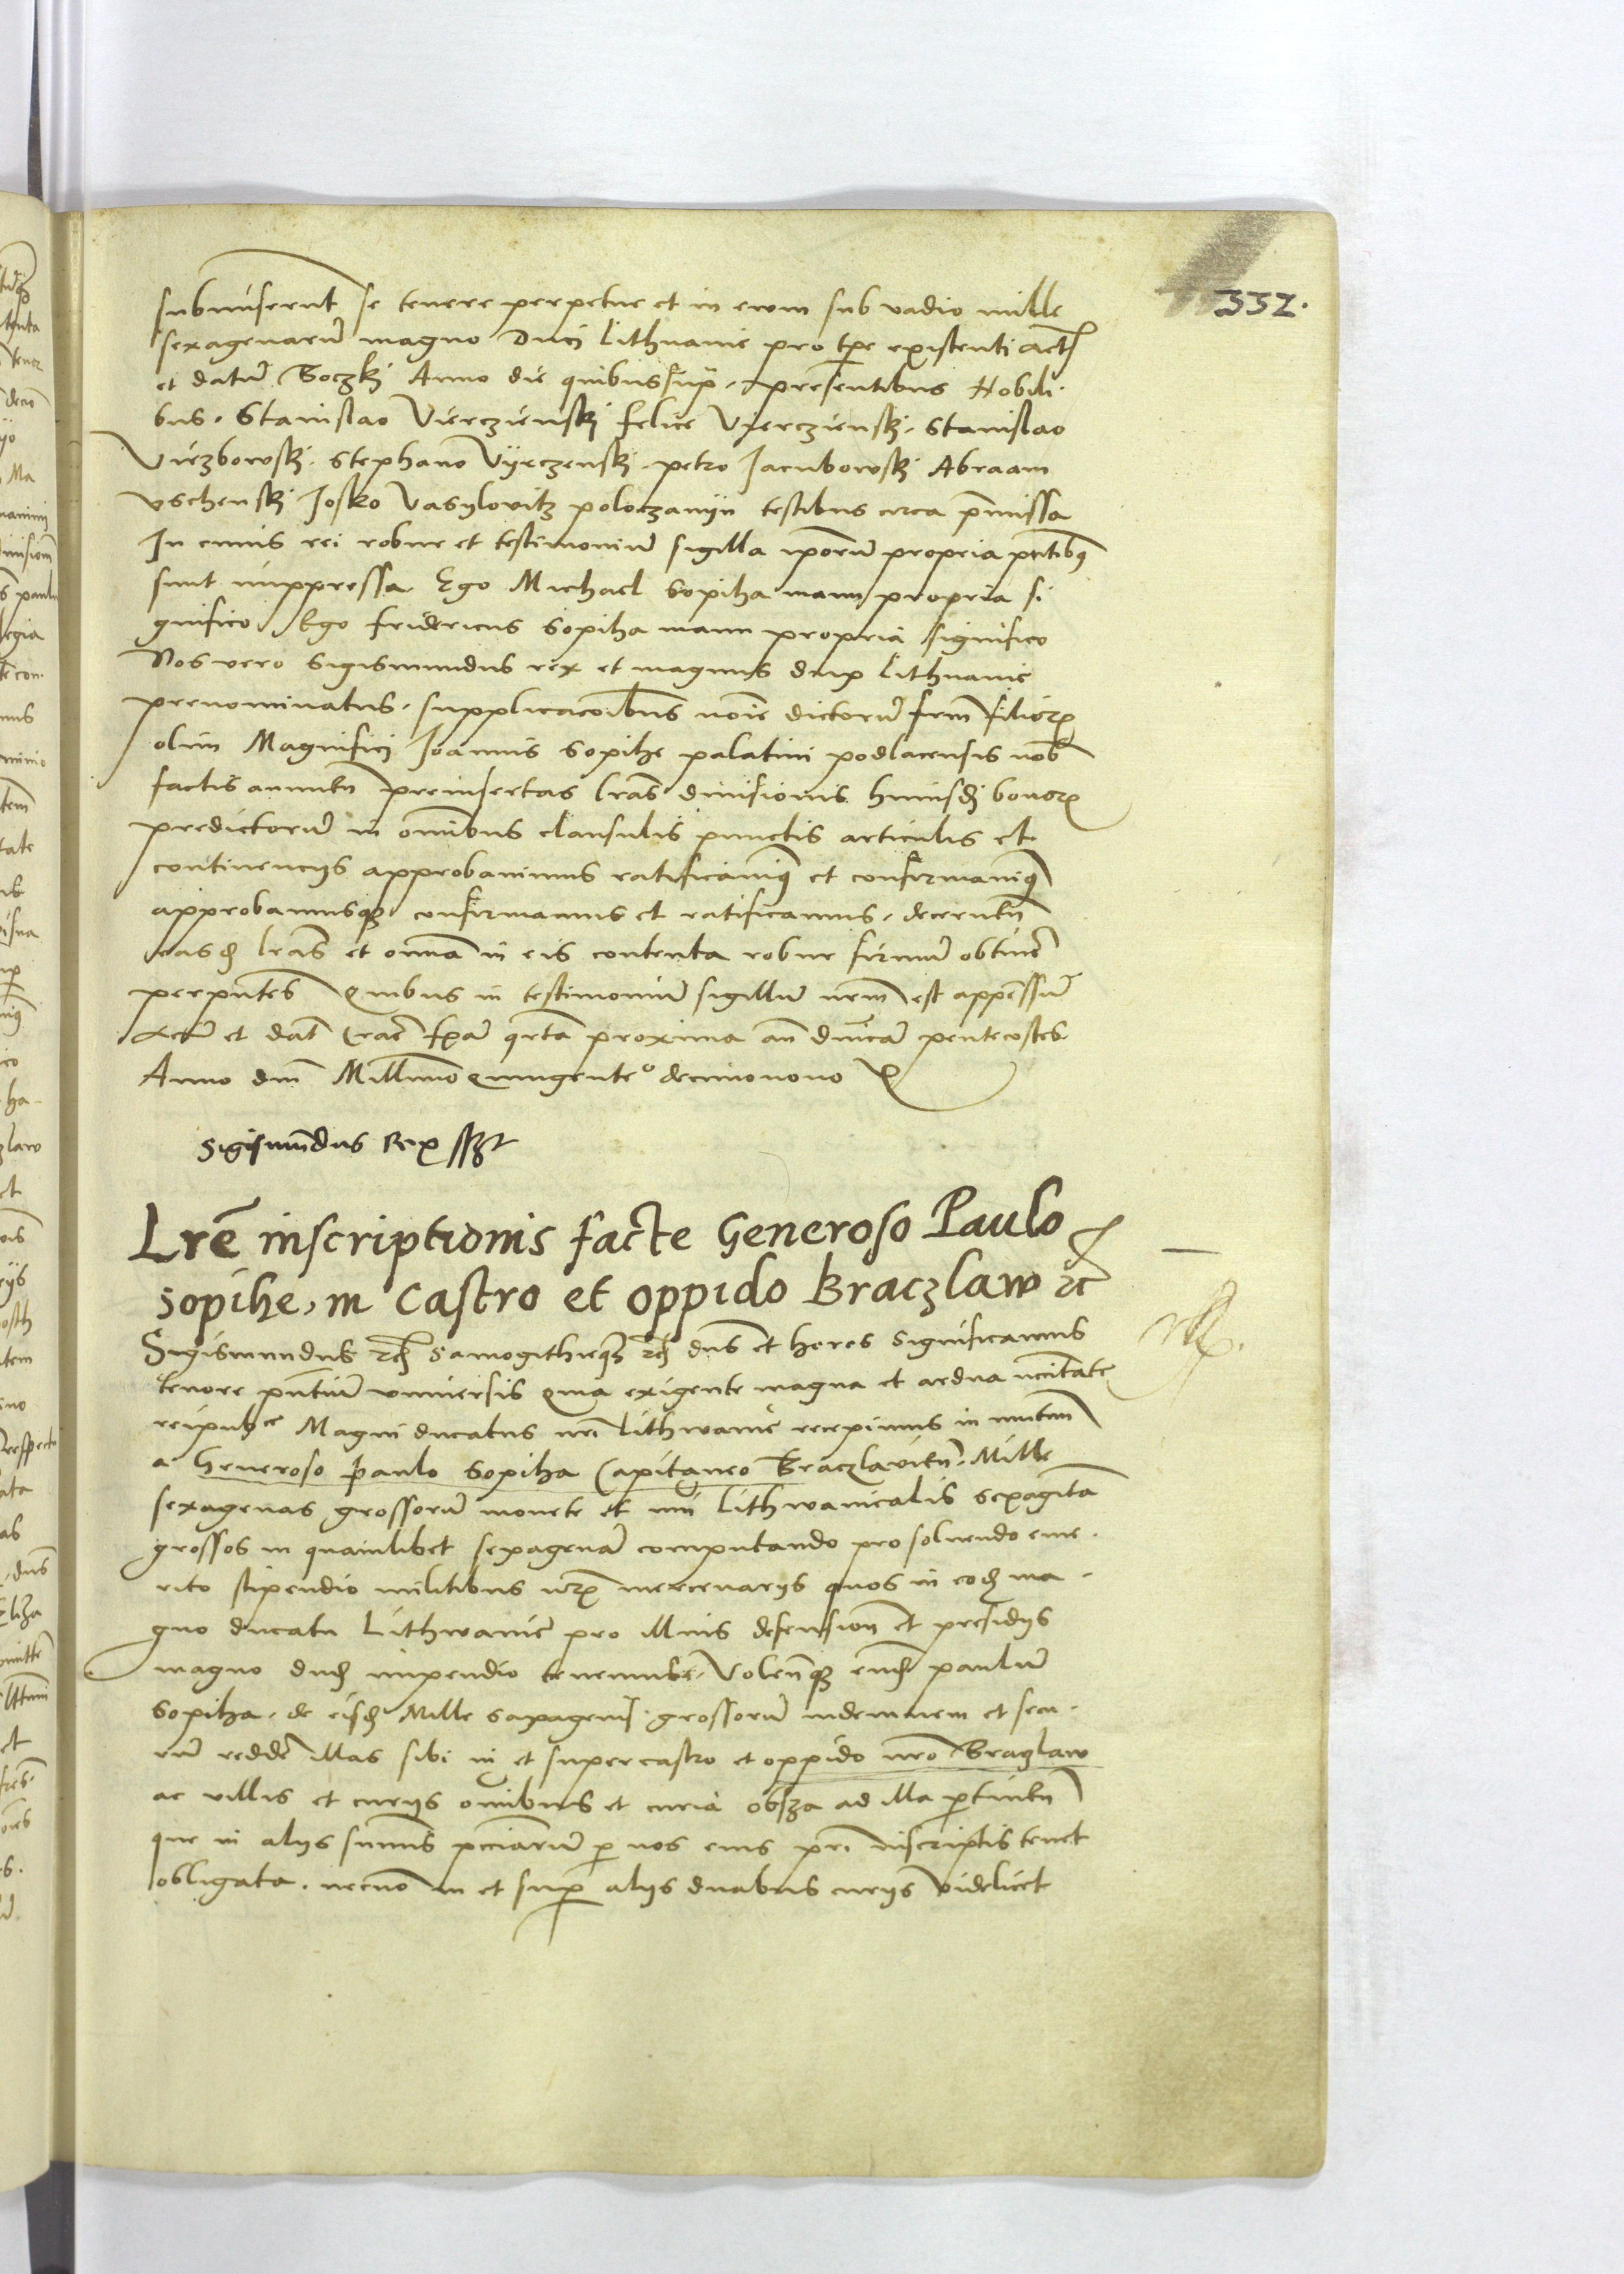 332.
submiserunt se tenere perpetue et in ewm sub vadio mille
sexagenarũ magno Duci Lithvanie pro tp̃e existenti act
et datũ Boczki Anno die quibus sup̃. presentibus Nobili.
bus. Stanislao Vierzienski felice Vierczienski. Stanislao
Vierzbowski. Stephano Vyrczenski. petro Iacubowski Abraam
Vschenski Josko Vasylovitz poloczanyn testibus circa p̃missa
In cuius rei robur et testimoniũ sigilla ip̃orũ propria pñtibus
sunt impressa Ego Michael Sopiha manu propria si
gnifico Ego fridericus Sopiha manu propria significo
Nos vero Sigismundus rex et magnus dux Lithvanie
prenominatus. supplicacõibus noĩe dictorũ frm̃ filiorꝝ
olim Magnifici Joannis Sopihe palatini podlacensis nob̃
factis annuẽn preinsertas l̃ras diuisionis huiusdi bonorꝝ
predictorũ in omnibus clausulis punctis articulis et
continencijs approbauimus ratificauimꝰ et confirmauimꝰ
approbamusqꝫ confirmamus et ratificamus. decernẽn
easd̃ l̃ras et om̃ia in eis contenta robur firmũ obtinẽ
per pñtes Quibus in testimoniũ sigillũ nr̃m est appenssũ
Actũ et dat̃ Crac̃ fr̃ia qr̃ta proxima añ dñicã pentecostes
Anno dñi Mill̃imo quingenteº decimonono
Sigismũdus Rex sszt
Lr̃e inscriptionis facte Generoso Paulo
Sopihe, in Castro et oppido Braczlaw ꝛc̃
Sigismundus ꝛc̃ Samogithieqꝫ ꝛc̃ dñs et heres Significamus
tenore pñtiũ vniuersis quia exigente magna et ardua nec̃itate
reipubce Magni ducatus nr̃i Lithwanie recepimus in mutuũ
a Generoso paulo Sopiha Capitaneo Braczlavieñ. Mille
sexagenas grossorũ monete et nũi Lithwanicalis sexagĩta
grossos in quamlibet sexagenã computando pro soluendo eme.
rito stipendio militibus nr̃is mercenarijs quos in eod̃ ma.
gno ducatu Lithwanie pro illius defension et presidijs
magno impendio tenemus. Volentesqꝫ eund̃ paulũ
Sopiha. de eisd̃ Mille sexagenis. grossorũ indemnem et secu.
rũ reddẽ illas sibi in et super castro et oppido nr̃o Braczlaw
ac villis et curijs om̃ibus et curia obsza ad illa ꝑtineñ
que in alijs sum̃is pecc̃iarũ ꝑ nos eius pr̃i inscriptis tenet
obligata. necnõ in et sup̃ alijs duabus curijs videlicet